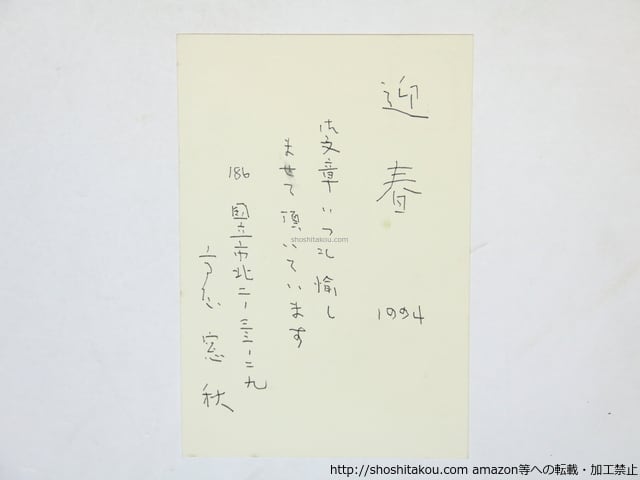 迎春 1994
御文章いつも愉し
ませて頂いています
186 国立市北二ー三三ー二九
高屋窓秋
shoshitakou.com
http://shoshitakou.com amazon等への転載・加工禁止